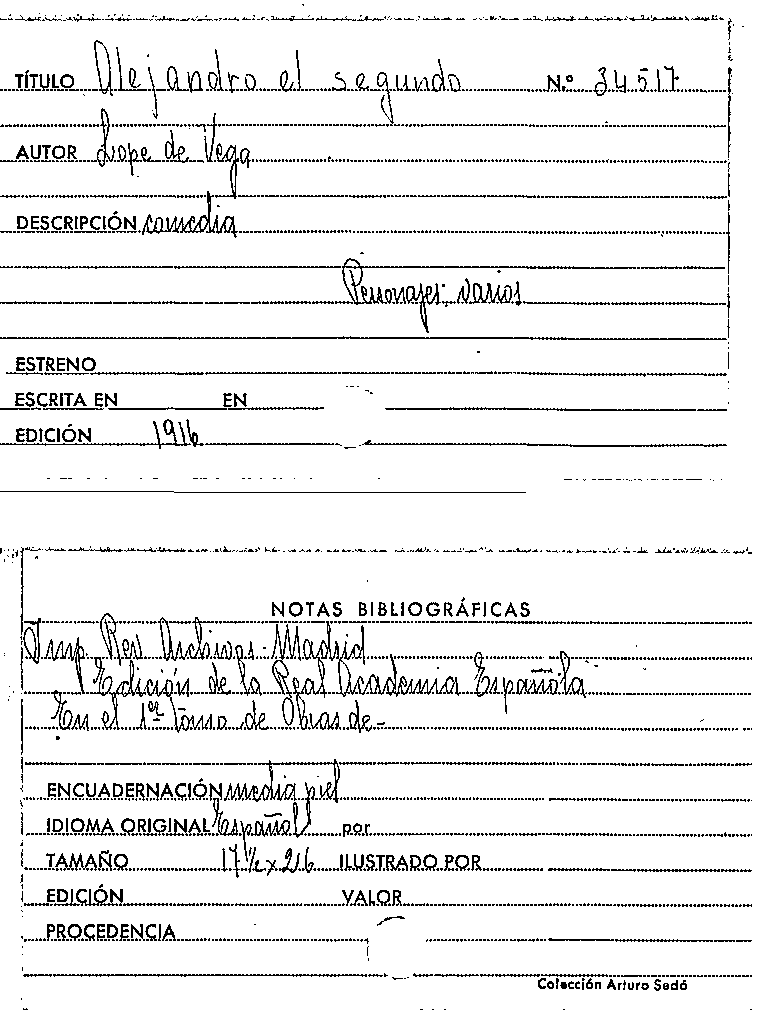 TÍTULO Alejandro el segundo N.º 34517
AUTOR Lope de Vega
DESCRIPCIÓN comedia
Personajes: varios
ESTRENO
ESCRITA EN EN
EDICIÓN 1916
NOTAS BIBLIOGRÁFICAS
Imp. Rev Archivos-Madrid
Edición de la Real Academia Española
En el 1er tomo de Obras de-
ENCUADERNACIÓN media piel
IDIOMA ORIGINAL Español por
TAMAÑO 17½ x 26 ILUSTRADO POR
EDICIÓN VALOR
PROCEDENCIA
Colección Arturo Sedó